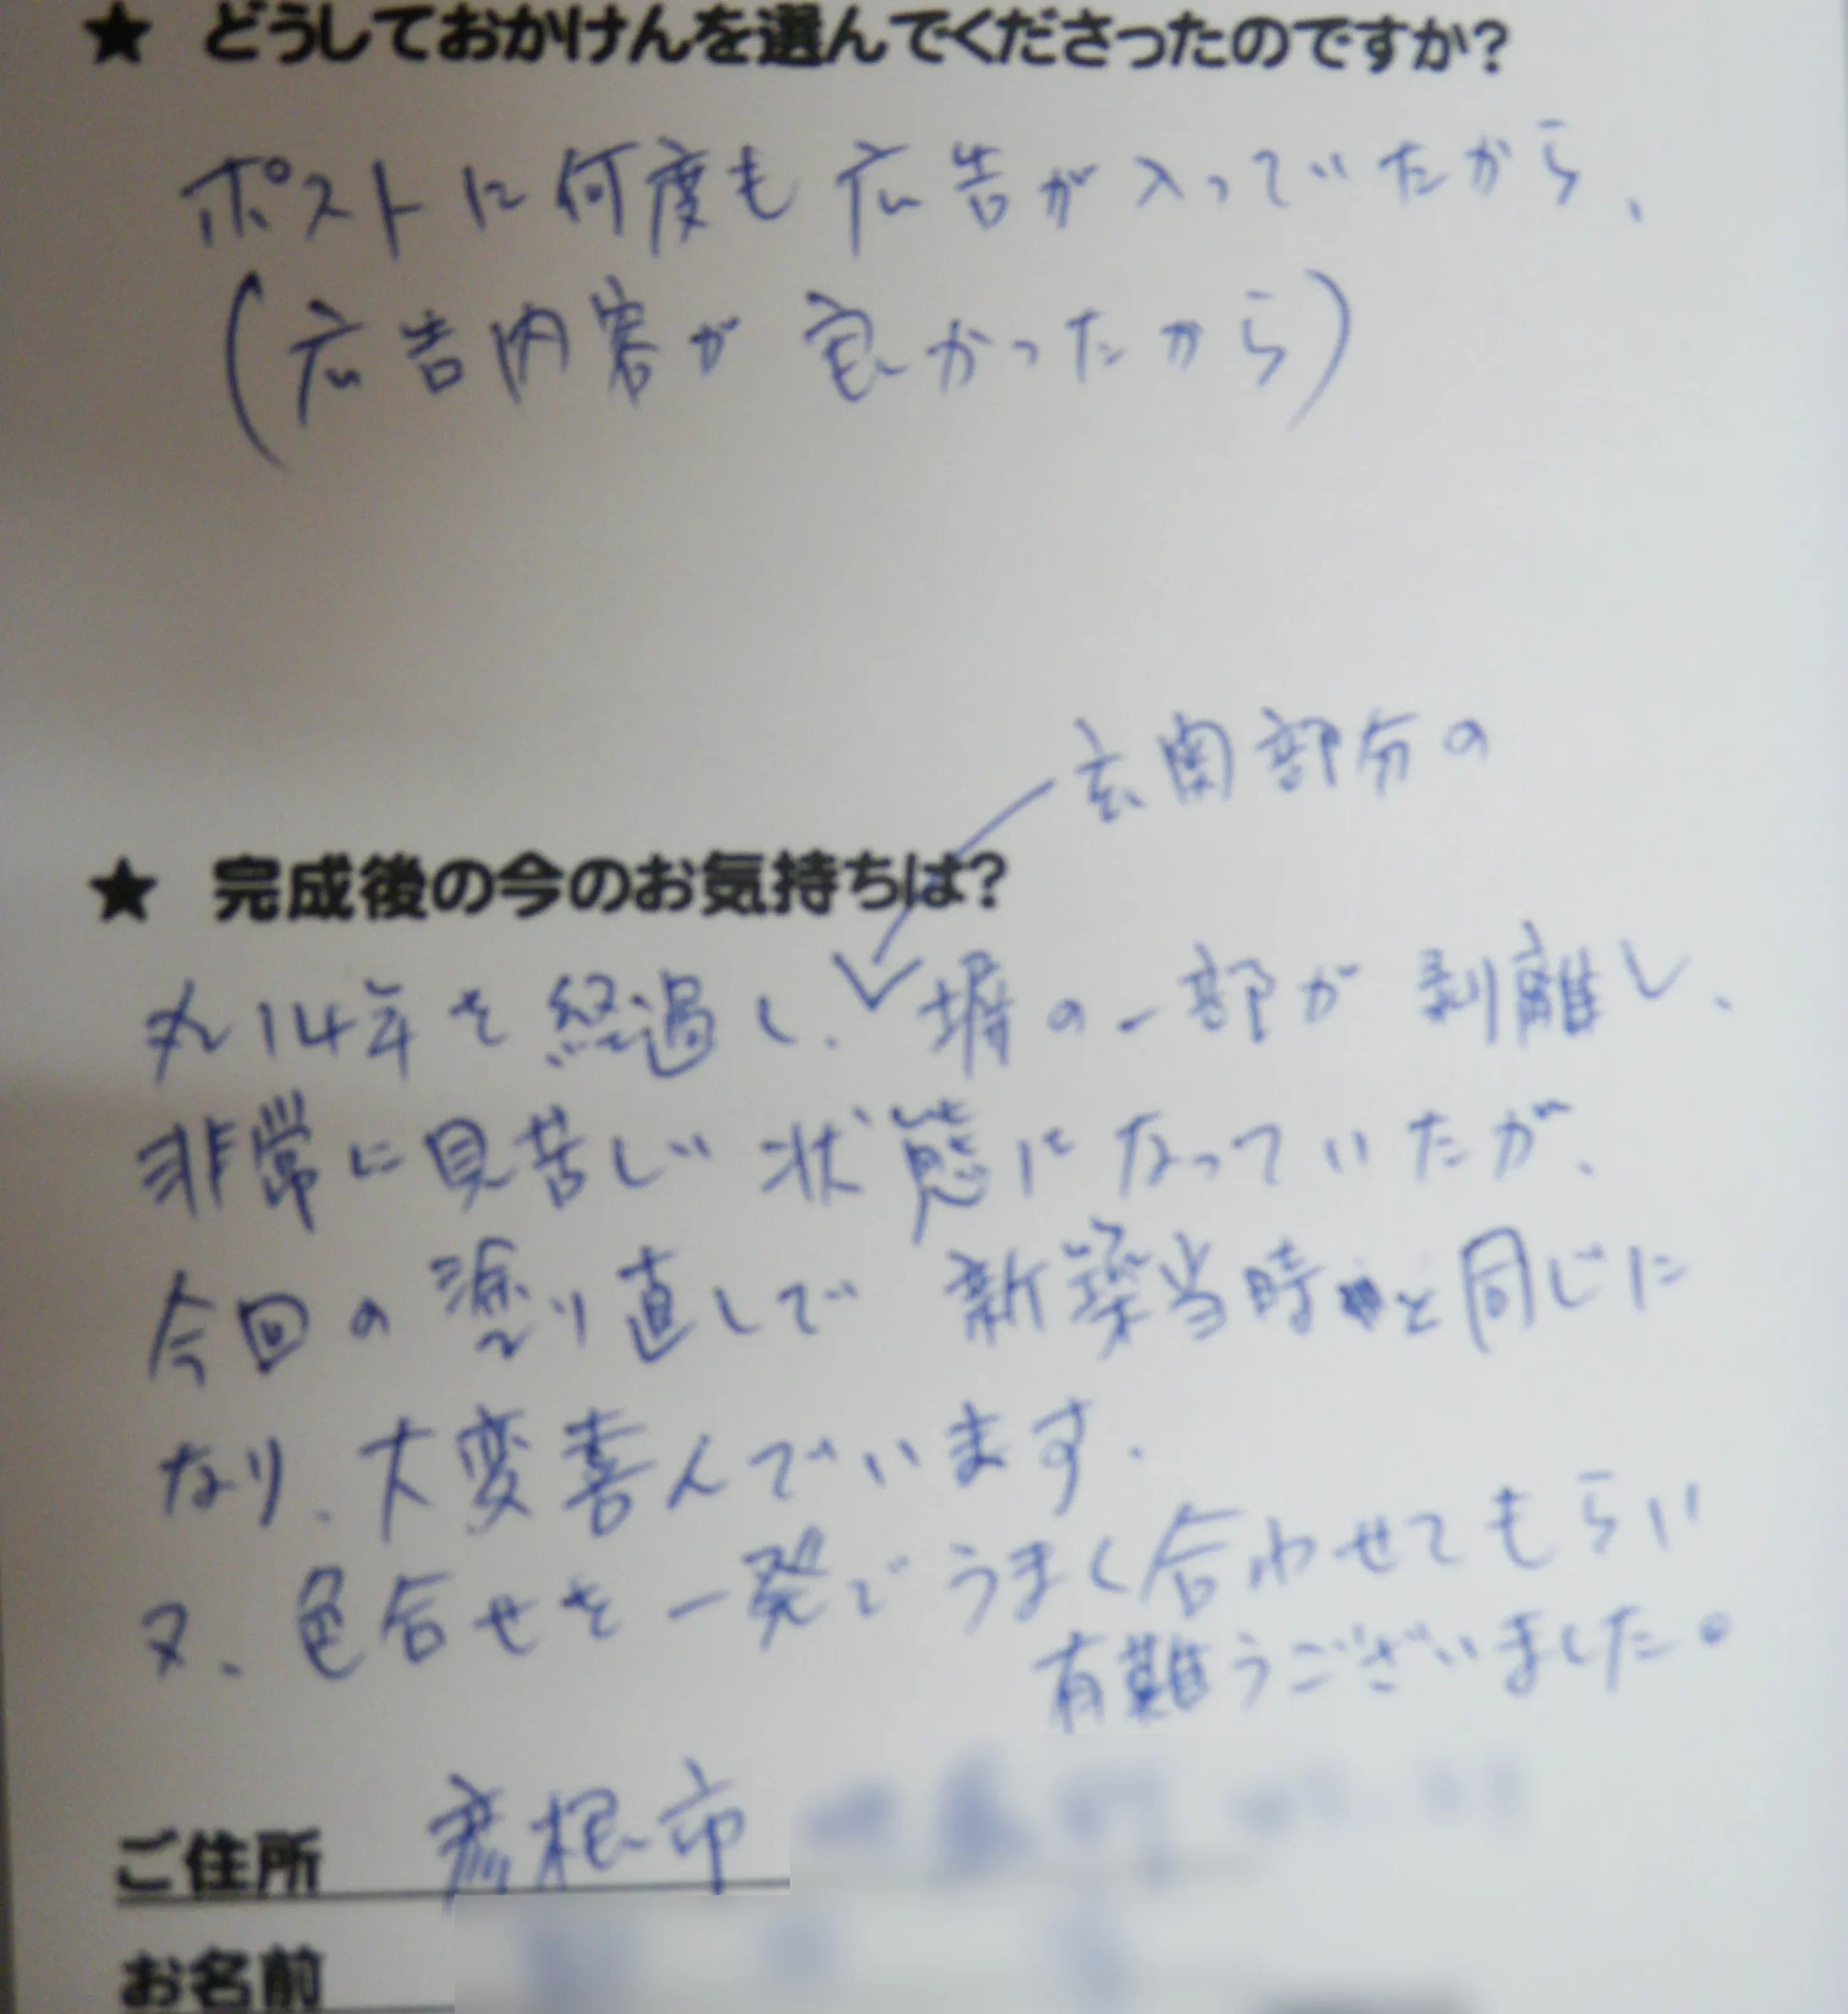 ★ どうしておかけんを選んでくださったのですか?
ポストに何度も広告が入っていたから、
(広告内容が良かったから)
玄関部分の
★ 完成後の今のお気持ちは?
丸14年を経過し、塀の一部が剥離し、
非常に見苦しい状態になっていたが、
今回の塗り直しで新築当時と同じに
なり、大変喜んでいます.
又、色合せを一発でうまく合わせてもらい
有難うございました。
ご住所 彦根市
お名前